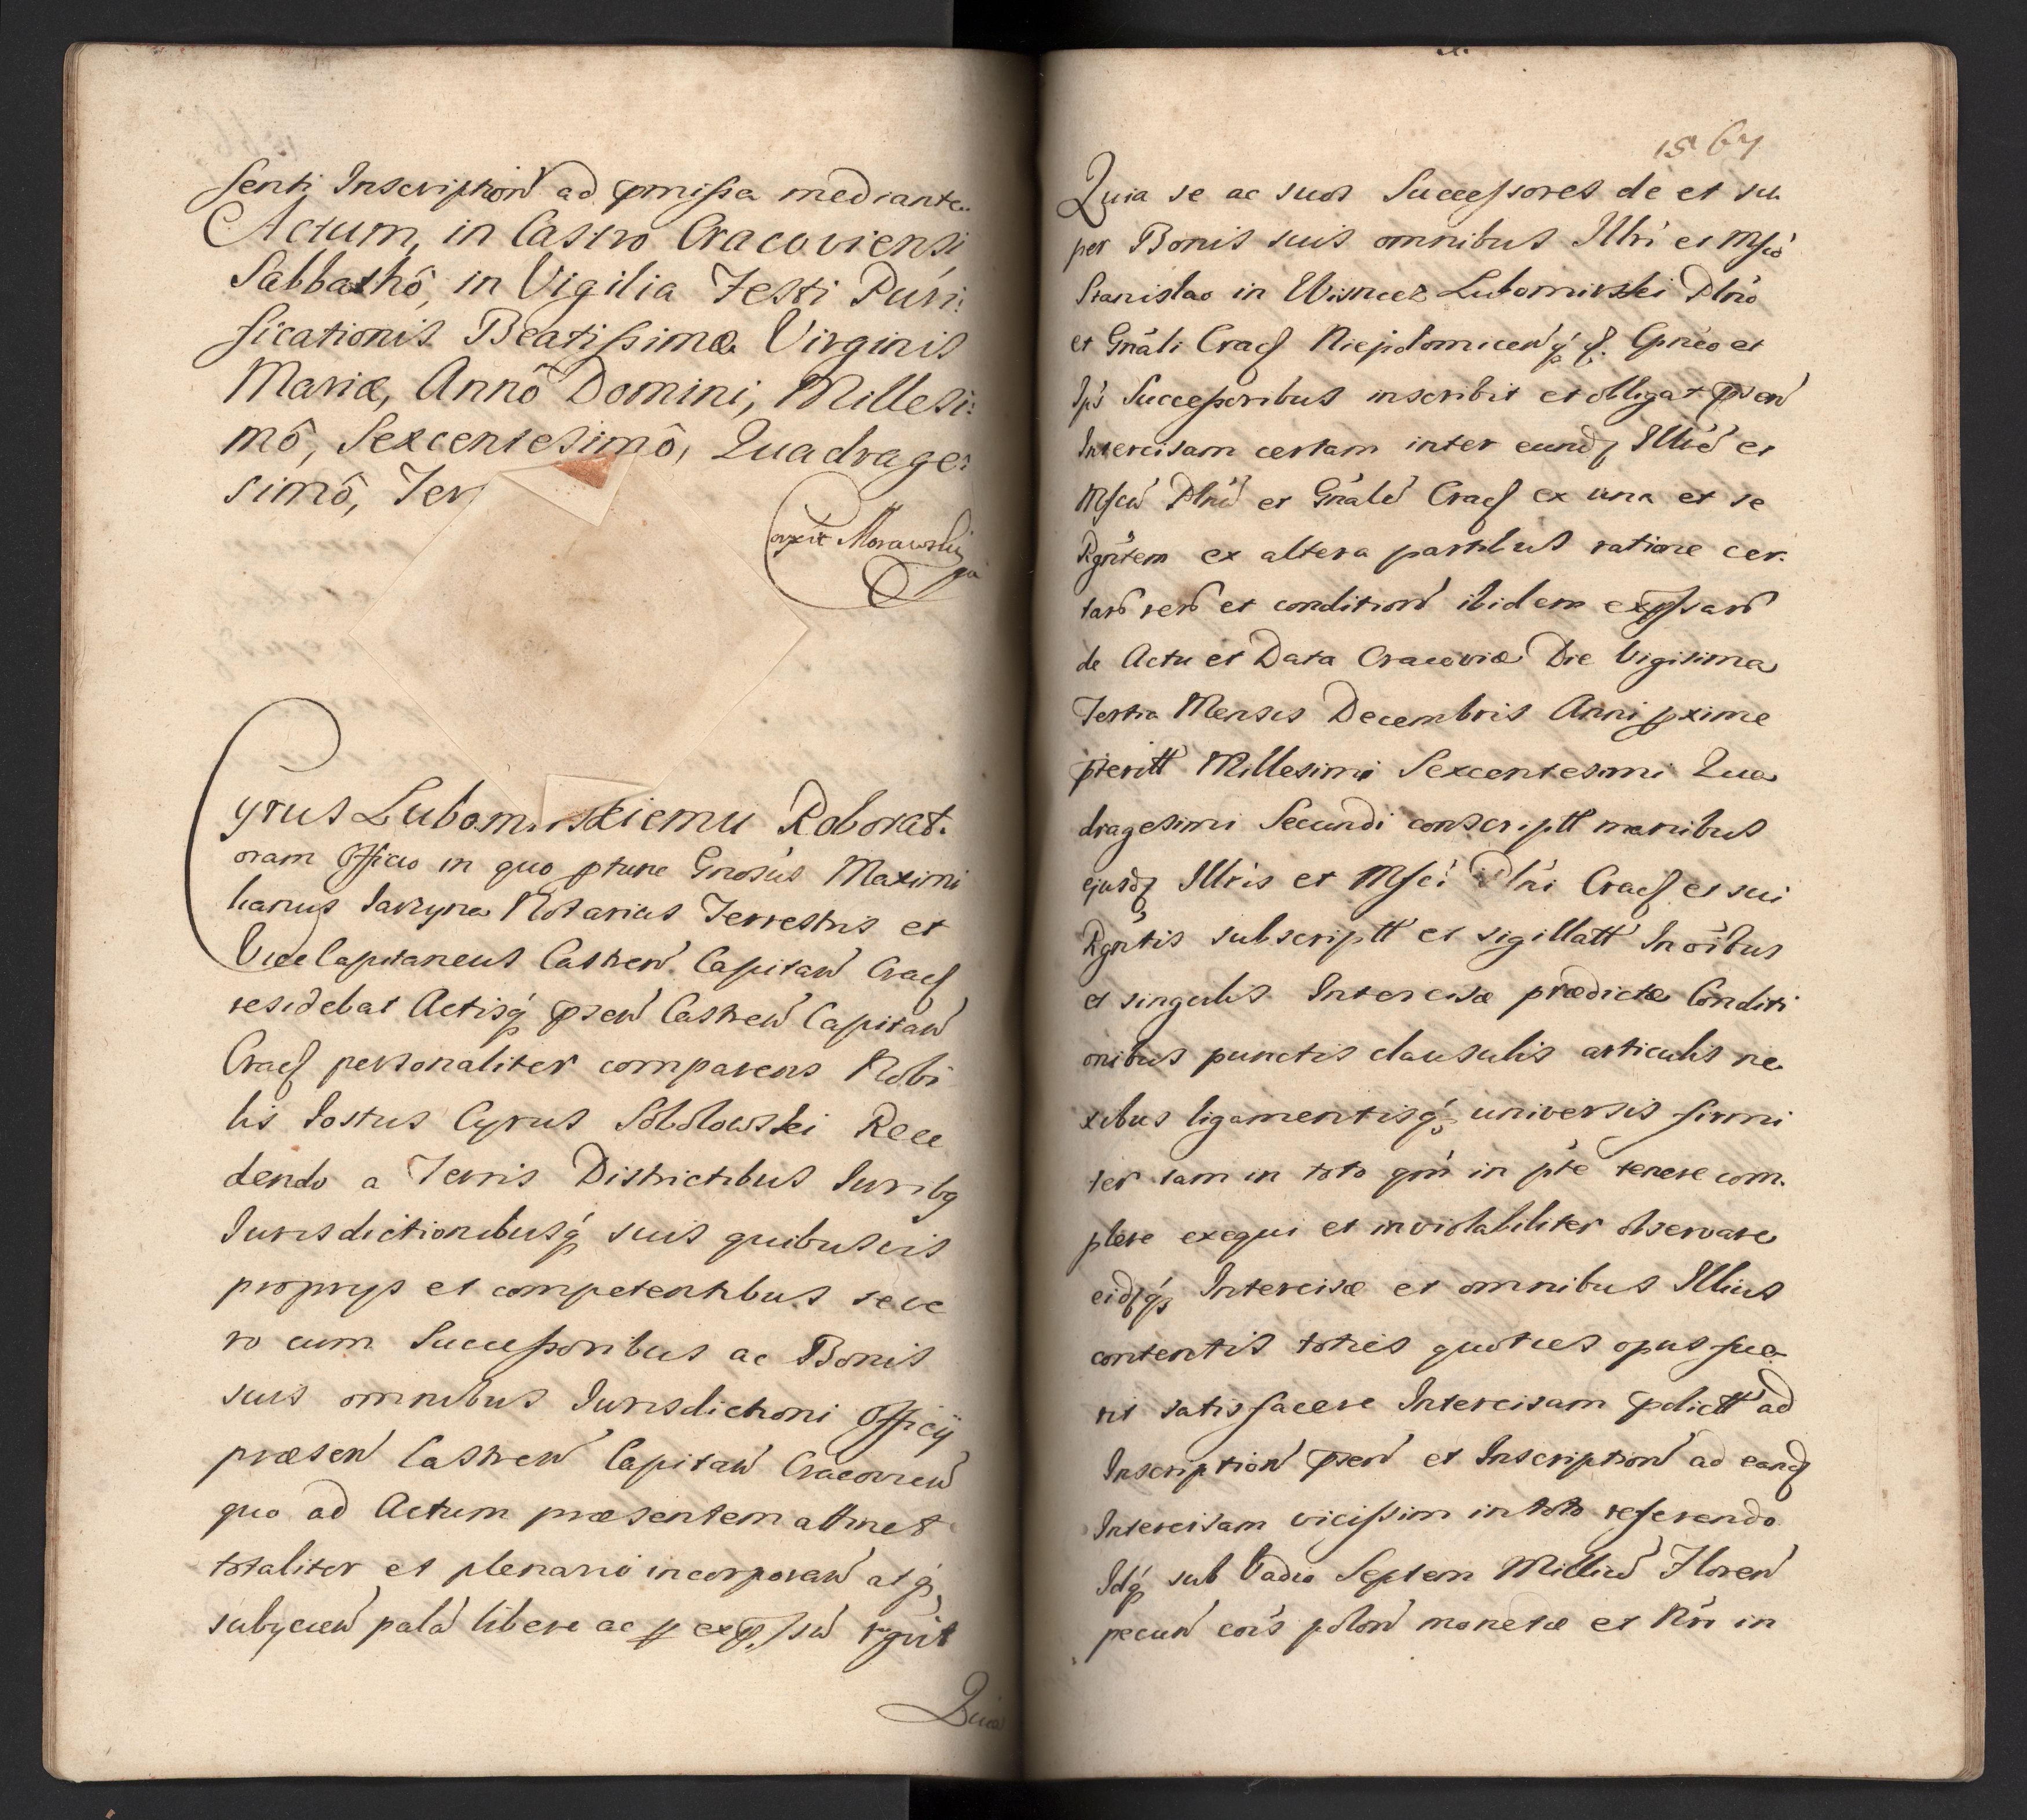 senti Inscription̄ ad p̄missa mediante.
Actum, in Castro Cracoviensi
Sabbathô, in Vigilia Festi Puri:
ficationis Beatissimæ Virginis
Mariæ, Annô Domini, Millesi:
mô, Sexcentesimô, Quadrage:
simô, Ter
Morawski
Cyrus Lubomirskiemu Roborat.
oram Officio in quo ptunc Gnosus Maximi
lianus Jarzyna Notarius Terrestris et
ViceCapitaneus Castren̄ Capitan̄ Cracꝭ
residebat Actisq́ꝫ pn̄sen̄ Castren̄ Capitan̄
Cracꝭ personaliter comparens Nobi
lis Jostus Cyrus Sobolowski Rece
dendo a Terris Districtibus Juribꝯ
Jurisdictionibusq́ꝫ suis quibusvis
proprys et competentibus se ve
ro cum Successoribus ac Bonis
suis omnibus Jurisdictioni Officÿ
præsen̄ Castren̄ Capitan̄ Cracovien̄
quo ad Actum præsentem attinet
totaliter et plenariè incorporan̄ atq́ꝫ
subycien̄ palā libere ac ꝑ exp̄ssū rgn̄it
Quia
15 67
Quia se ac suos Successores de et su
per Bonis suis omnibus Illri et Mfco
Stanislao in Wisnicz Lubomirski Plno
et Gnāli Cracꝭ Niepolomicen̄ q́ꝫ Cpneo et
Ips Successoribus inscribit et obligat p̄sen̄
Intercisam certam inter eundꝫ Illrē et
Mfcū Plnū et Gnālē Cracꝭ ex una et se
Rgn̄tem ex altera partibus ratione cer.
tarō rerō et conditionō ibidem exp̄ssarō
de Actu et Data Cracoviæ Die Vigisima
Tertia Mensis Decembris Anni pxime
p̄teritt Millesimi Sexcentesimi Qua
dragesimi Secundi conscriptt manibus
ejusdꝫ Illris et Mfci Plni Cracꝭ et sui
Rgn̄tis subscriptt et sigillatt In oībus
et singulis Intercisæ prædictæ Conditi
onibus punctis clausulis articulis ne
xibus ligamentisq́ꝫ universis firmi
ter tam in toto qm̄ in pte tenere com.
plere exequi et inviolabiliter observare
eidꝫq́ꝫ Intercisæ et omnibus Illius
contentis toties quoties opus fue
rit satisfacere Intercisam p̄dictt ad
Inscription̄ p̄sen̄ et Inscription̄ ad eandꝫ
Intercisam vicissim in toto referendo
Idq́ꝫ sub Vadio Septem Milliū Floren̄
pecun̄ coīs polon̄ monetæ et Nri in